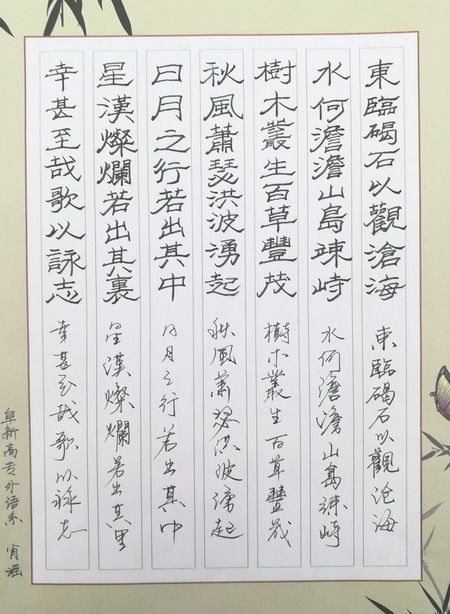 東臨碣石以觀滄海 東臨碣石以觀沧海
水何澹澹山島竦峙 水何澹澹山島竦峙
樹木叢生百草豐茂 樹木叢生百草豐茂
秋風蕭瑟洪波湧起 秋風蕭瑟洪波涌起
日月之行若出其中 日月之行若出其中
星漢燦爛若出其裏 星漢燦爛若出其里
幸甚至哉歌以詠志 幸甚至哉歌以詠志
阜新高专外语系 肖